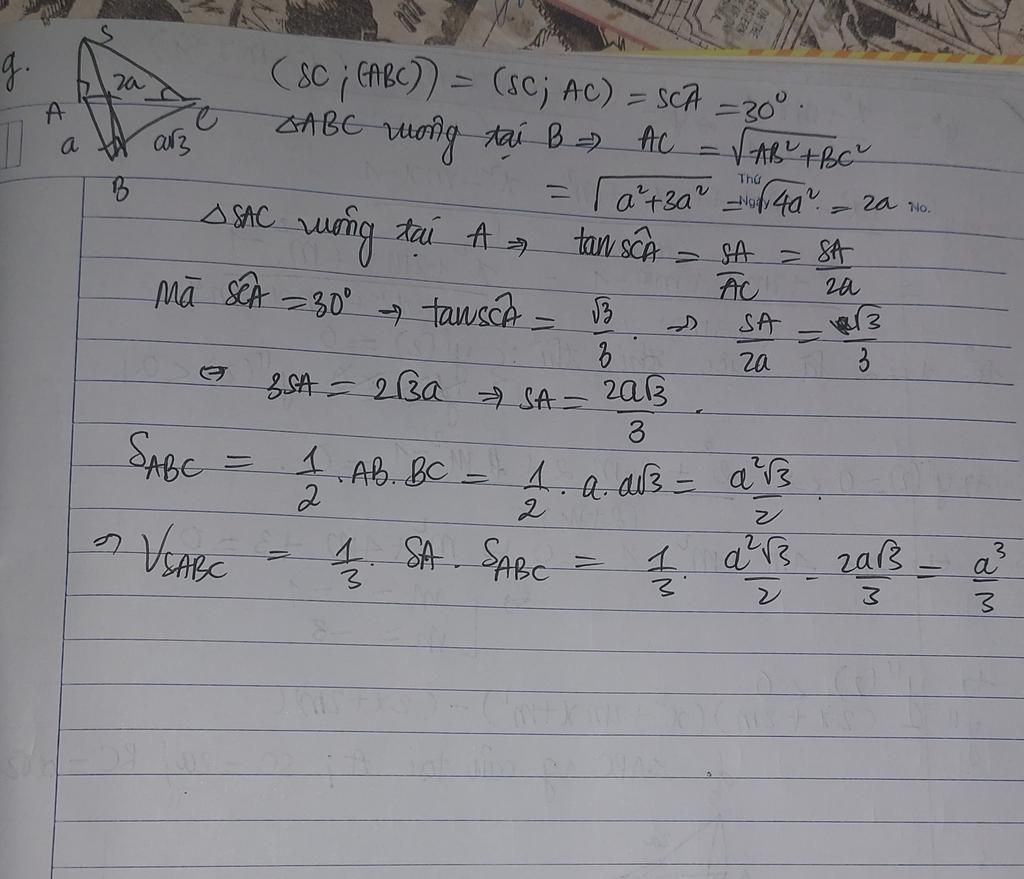 g.
S
2a
A
C
a
a√3
B
(SC; (ABC)) = (SC; AC) = SCÂ = 30°.
△ABC vuông tại B ⇒ AC = √(AB² + BC²)
Thứ
Ngày
No.
= √(a² + 3a²) = √(4a²) = 2a
△SAC vuông tại A ⇒ tan SĈA = SA/AC = SA/2a
Mà SĈA = 30° → tan SĈA = √3/3. ⇒ SA/2a = √3/3
⇔ 3SA = 2√3a ⇒ SA = 2a√3/3.
S_ABC = 1/2 . AB. BC = 1/2 . a. a√3 = a²√3/2.
⇒ V_SABC = 1/3 . SA . S_ABC = 1/3 . a²√3/2 . 2a√3/3 = a³/3